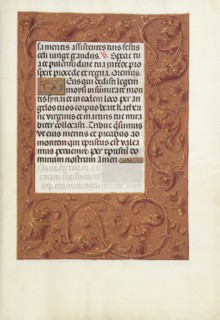 sa mentis assistentes tuis festis
ecti iungi gaudiis. V. Specie tu
a et pulchritudine tua intende pro
spere procede et regna. Oremus.
Deus qui dedisti legem
moysi in summitate mon
tis synai et in eodem loco per an
gelos tuos corpus beate katheri
ne virginis et martiris tue mira
biliter collocasti. Tribue quesumus
ut eius meritis et precibus ad
montem qui christus est valea
mus pervenire. per christum do
minum nostrum Amen